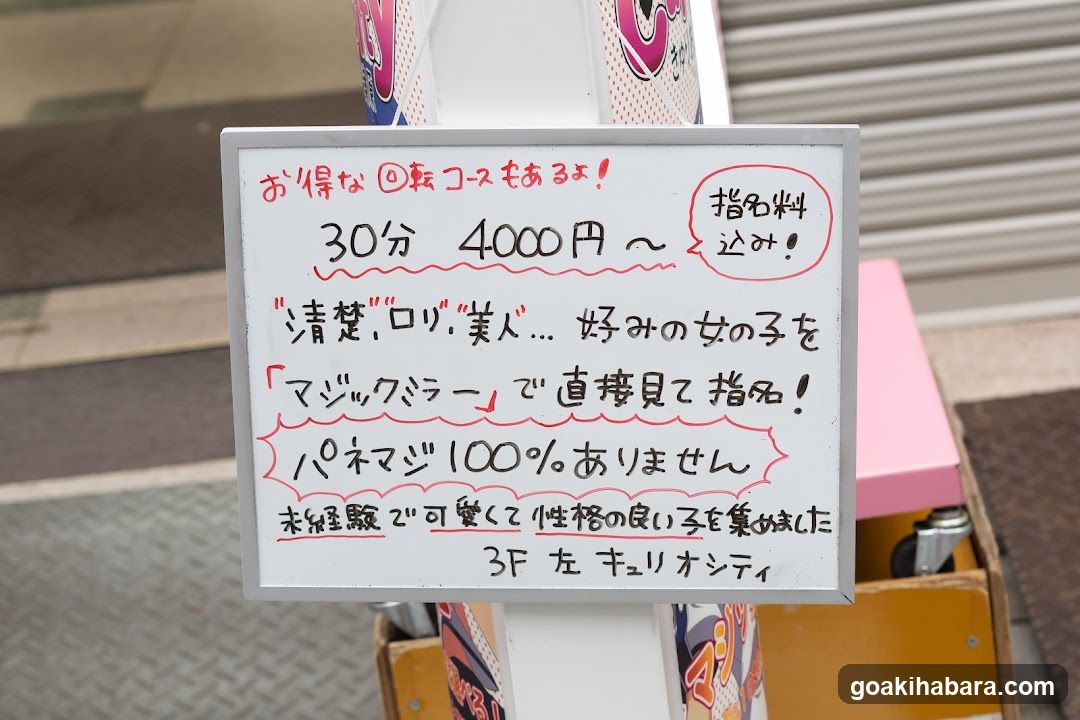 お得な回転コースもあるよ!
30分 4000円～
指名料
込み!
"清楚"、"ロリ"、"美人"... 好みの女の子を
「マジックミラー」で直接見て指名!
パネマジ100%ありません
未経験で可愛くて性格の良い子を集めました
3F 左 キュリオシティ
マジック
goakihabara.com